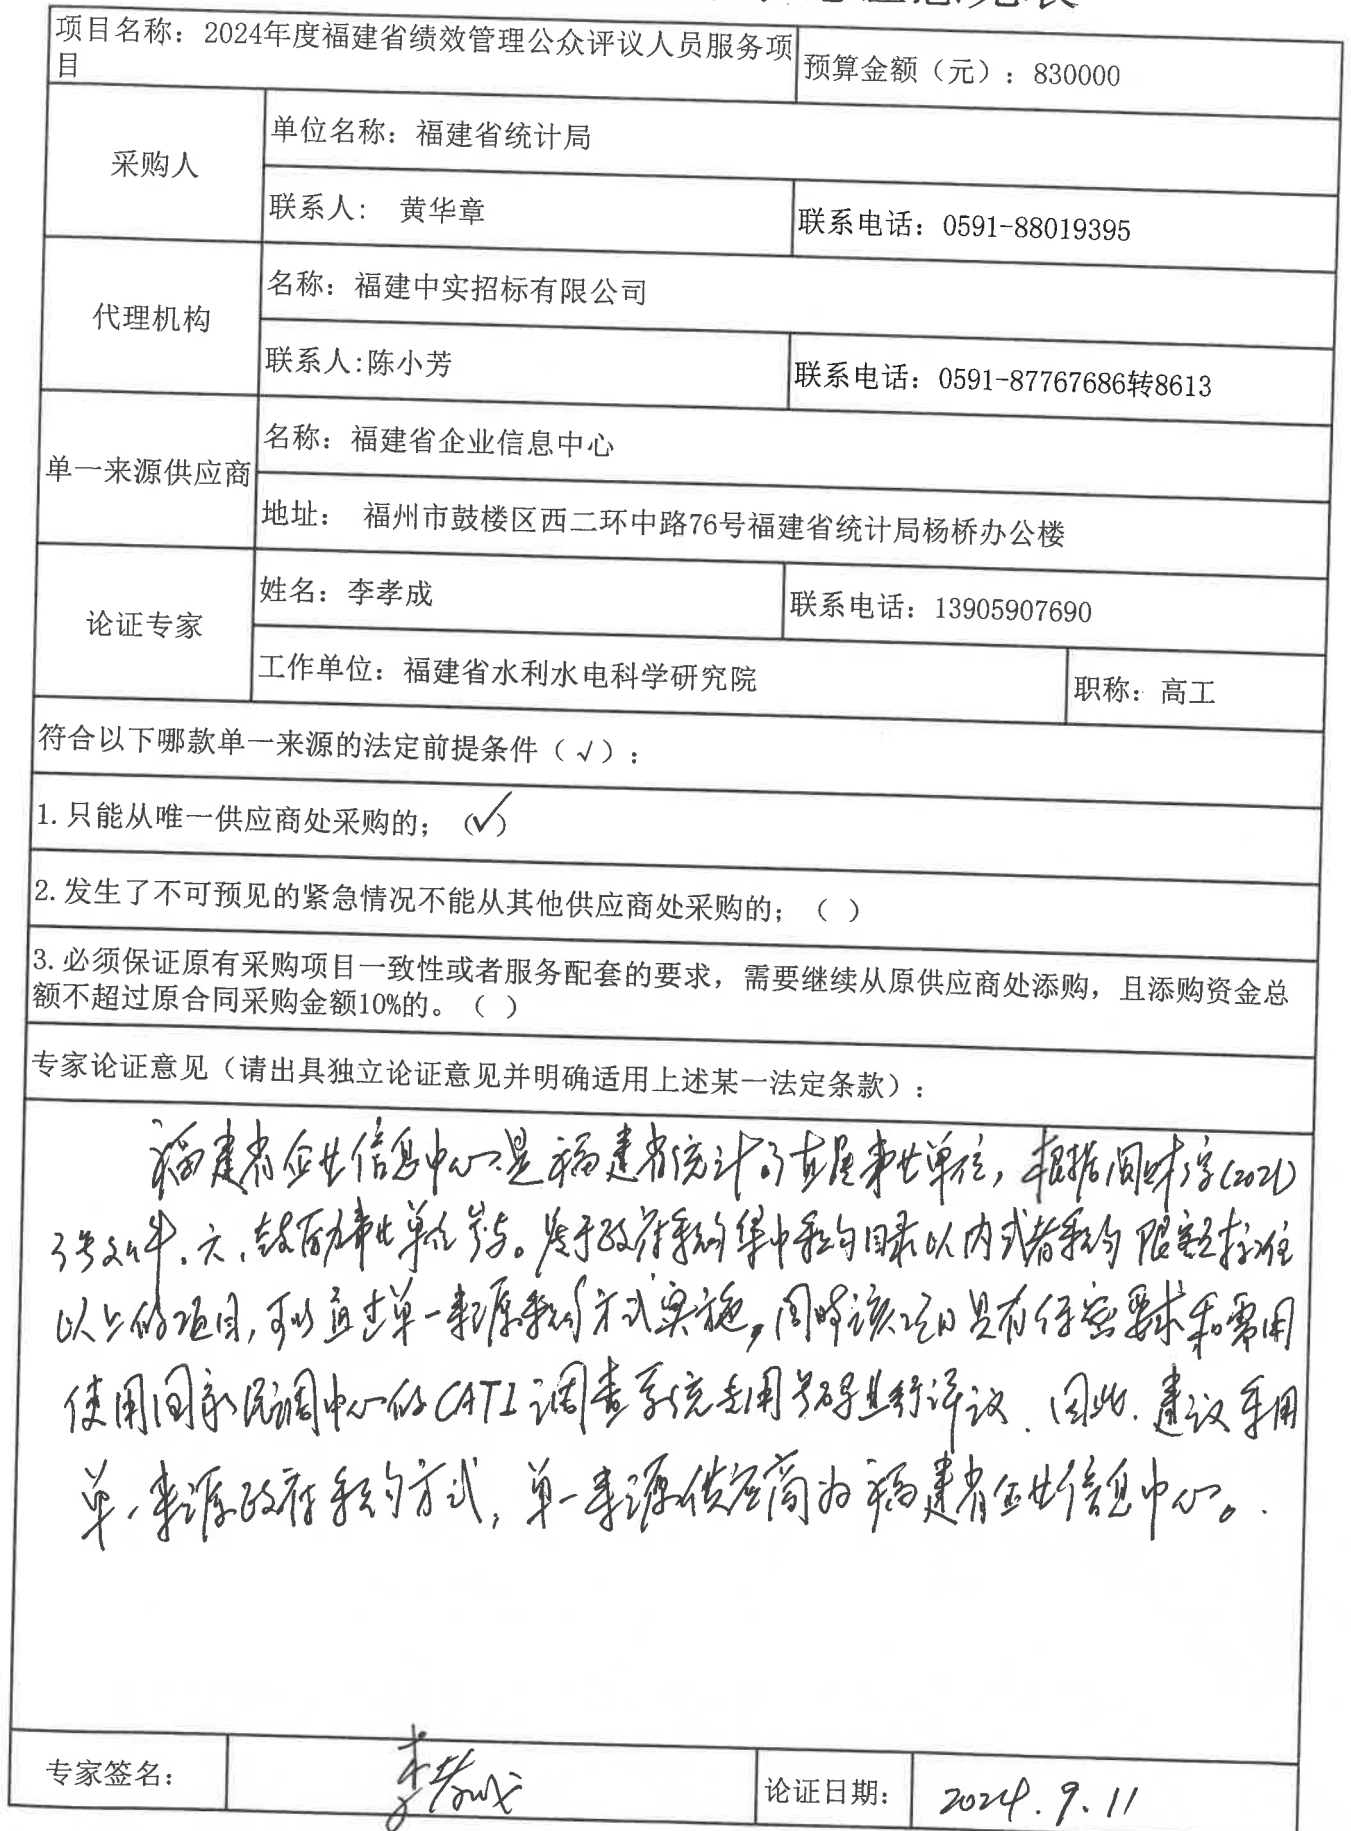 项目名称：2024年度福建省绩效管理公众评议人员服务项
目
预算金额（元）：830000
采购人
单位名称：福建省统计局
联系人： 黄华章
联系电话：0591-88019395
代理机构
名称：福建中实招标有限公司
联系人:陈小芳
联系电话：0591-87767686转8613
单一来源供应商
名称：福建省企业信息中心
地址： 福州市鼓楼区西二环中路76号福建省统计局杨桥办公楼
论证专家
姓名：李孝成
联系电话：13905907690
工作单位：福建省水利水电科学研究院
职称：高工
符合以下哪款单一来源的法定前提条件（√）：
1.只能从唯一供应商处采购的；（✓）
2.发生了不可预见的紧急情况不能从其他供应商处采购的；（ ）
3.必须保证原有采购项目一致性或者服务配套的要求，需要继续从原供应商处添购，且添购资金总
额不超过原合同采购金额10%的。（ ）
专家论证意见（请出具独立论证意见并明确适用上述某一法定条款）：
福建省企业信息中心是福建省统计局直属事业单位，根据闽财字(2021)
3号文件，六、鼓励事业单位参与。属于政府采购集中采购目录以内或者采购限额标准
以上的项目，可以通过单一来源采购方式实施，同时该项目具有保密要求和需用
使用国家民调中心的CATI调查系统专用号码进行评议．因此，建议采用
单一来源政府采购方式，单一来源供应商为福建省企业信息中心。
专家签名：
李孝成
论证日期：
2024.9.11